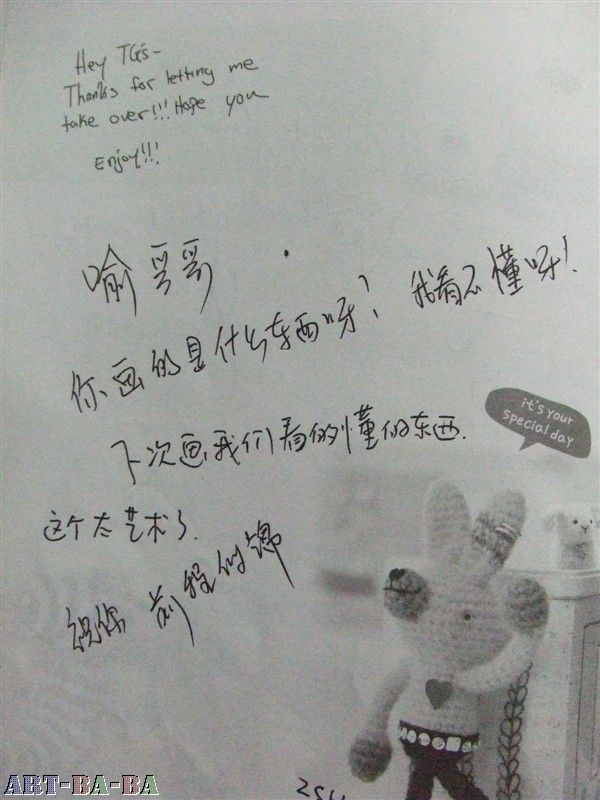 Hey TG's-
Thanks for letting me
take over!!! Hope you
Enjoy!!!
喻哥哥
你画的是什么东西呀! 我看不懂呀!
下次画我们看的懂的东西.
这个太艺术了.
祝你 前程似锦
it's your
special day
ART-BA-BA